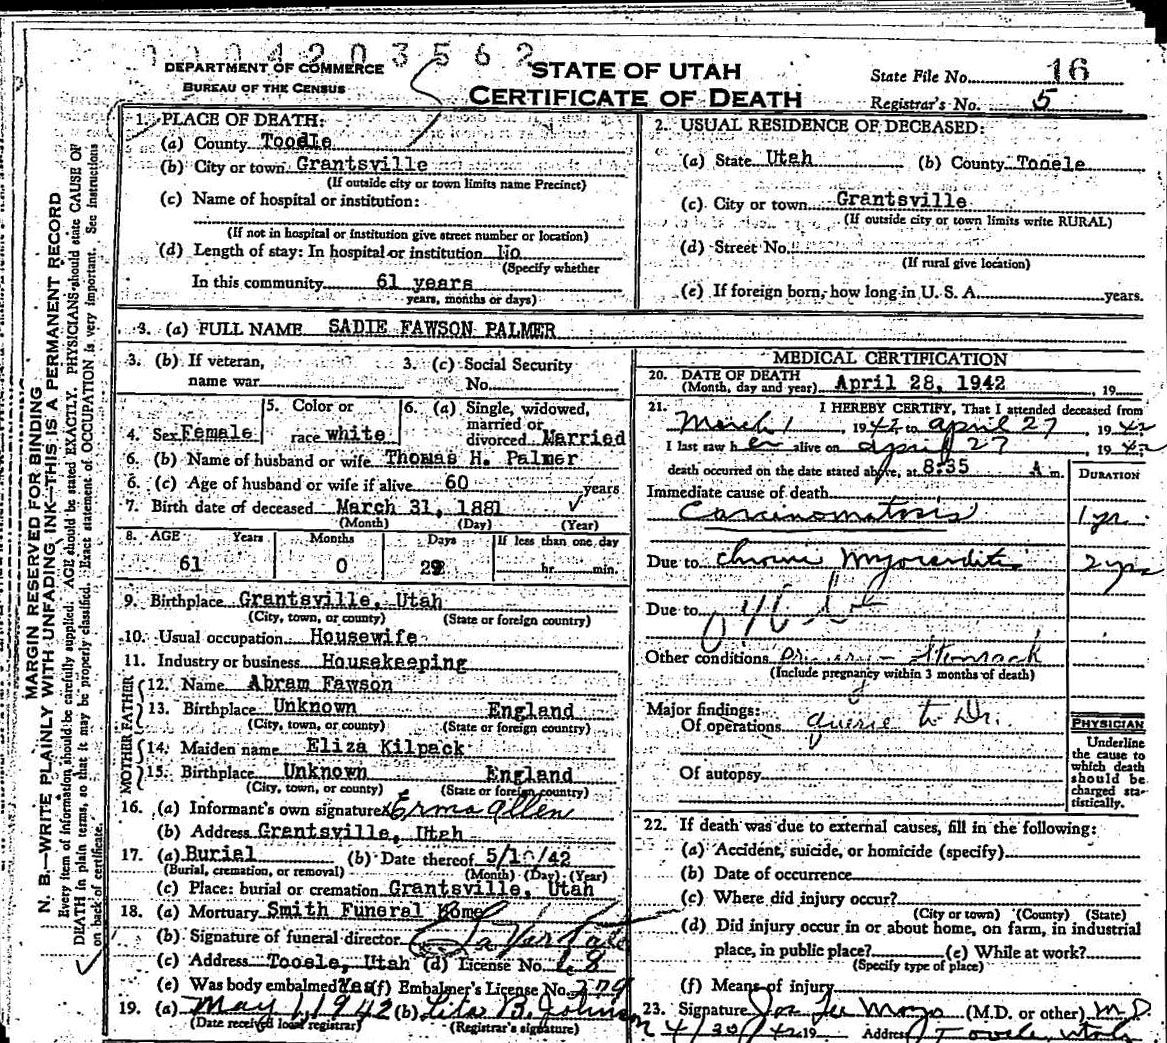 0004203562
DEPARTMENT OF COMMERCE
BUREAU OF THE CENSUS
STATE OF UTAH
CERTIFICATE OF DEATH
State File No. 16
Registrar's No. 5
MARGIN RESERVED FOR BINDING
N. B.—WRITE PLAINLY WITH UNFADING INK—THIS IS A PERMANENT RECORD
Every item of information should be carefully supplied. AGE should be stated EXACTLY. PHYSICIANS should state CAUSE OF
DEATH in plain terms, so that it may be properly classified. Exact statement of OCCUPATION is very important. See instructions
on back of certificate.
1. PLACE OF DEATH:
(a) County Tooele
(b) City or town Grantsville
(If outside city or town limits name Precinct)
(c) Name of hospital or institution:
(If not in hospital or institution give street number or location)
(d) Length of stay: In hospital or institution No
(Specify whether
In this community 61 years
years, months or days)
2. USUAL RESIDENCE OF DECEASED:
(a) State Utah (b) County Tooele
(c) City or town Grantsville
(If outside city or town limits write RURAL)
(d) Street No.
(If rural give location)
(e) If foreign born, how long in U. S. A. years.
3. (a) FULL NAME SADIE FAWSON PALMER
3. (b) If veteran, name war
3. (c) Social Security No.
4. Sex Female
5. Color or race white
6. (a) Single, widowed, married or divorced Married
6. (b) Name of husband or wife Thomas H. Palmer
6. (c) Age of husband or wife if alive 60 years
7. Birth date of deceased March 31, 1881
(Month) (Day) (Year)
8. AGE Years Months Days If less than one day
61 0 28 hr. min.
9. Birthplace Grantsville, Utah
(City, town, or county) (State or foreign country)
10. Usual occupation Housewife
11. Industry or business Housekeeping
FATHER
12. Name Abram Fawson
13. Birthplace Unknown England
(City, town, or county) (State or foreign country)
MOTHER
14. Maiden name Eliza Kilpack
15. Birthplace Unknown England
(City, town, or county) (State or foreign country)
16. (a) Informant's own signature x Erma Allen
(b) Address Grantsville, Utah
17. (a) Burial (b) Date thereof 5/1 /42
(Burial, cremation, or removal) (Month) (Day) (Year)
(c) Place: burial or cremation Grantsville, Utah
18. (a) Mortuary Smith Funeral Home
(b) Signature of funeral director
(c) Address Tooele, Utah (d) License No. 68
(e) Was body embalmed Yes (f) Embalmer's License No. 379
19. (a) May 1, 1942 (b) Lita B. Johnson
(Date received local registrar) (Registrar's signature)
MEDICAL CERTIFICATION
20. DATE OF DEATH
(Month, day and year) April 28, 1942 19
21. I HEREBY CERTIFY, That I attended deceased from
March 1, 1942 to April 27, 1942
I last saw her alive on April 27, 1942
death occurred on the date stated above, at 8:35 A m.
DURATION
Immediate cause of death
Carcinomatosis 1 yr.
Due to chronic Myocarditis 2 yrs
Due to
Other conditions Primary – Stomach
(Include pregnancy within 3 months of death)
Major findings:
Of operations querie to Dr.
Of autopsy
PHYSICIAN
Underline
the cause to
which death
should be
charged sta-
tistically.
22. If death was due to external causes, fill in the following:
(a) Accident, suicide, or homicide (specify)
(b) Date of occurrence
(c) Where did injury occur?
(City or town) (County) (State)
(d) Did injury occur in or about home, on farm, in industrial
place, in public place? (e) While at work?
(Specify type of place)
(f) Means of injury
23. Signature Jos Lee Mayo (M.D. or other) M.D.
4/30/42 19 Address Tooele, Utah